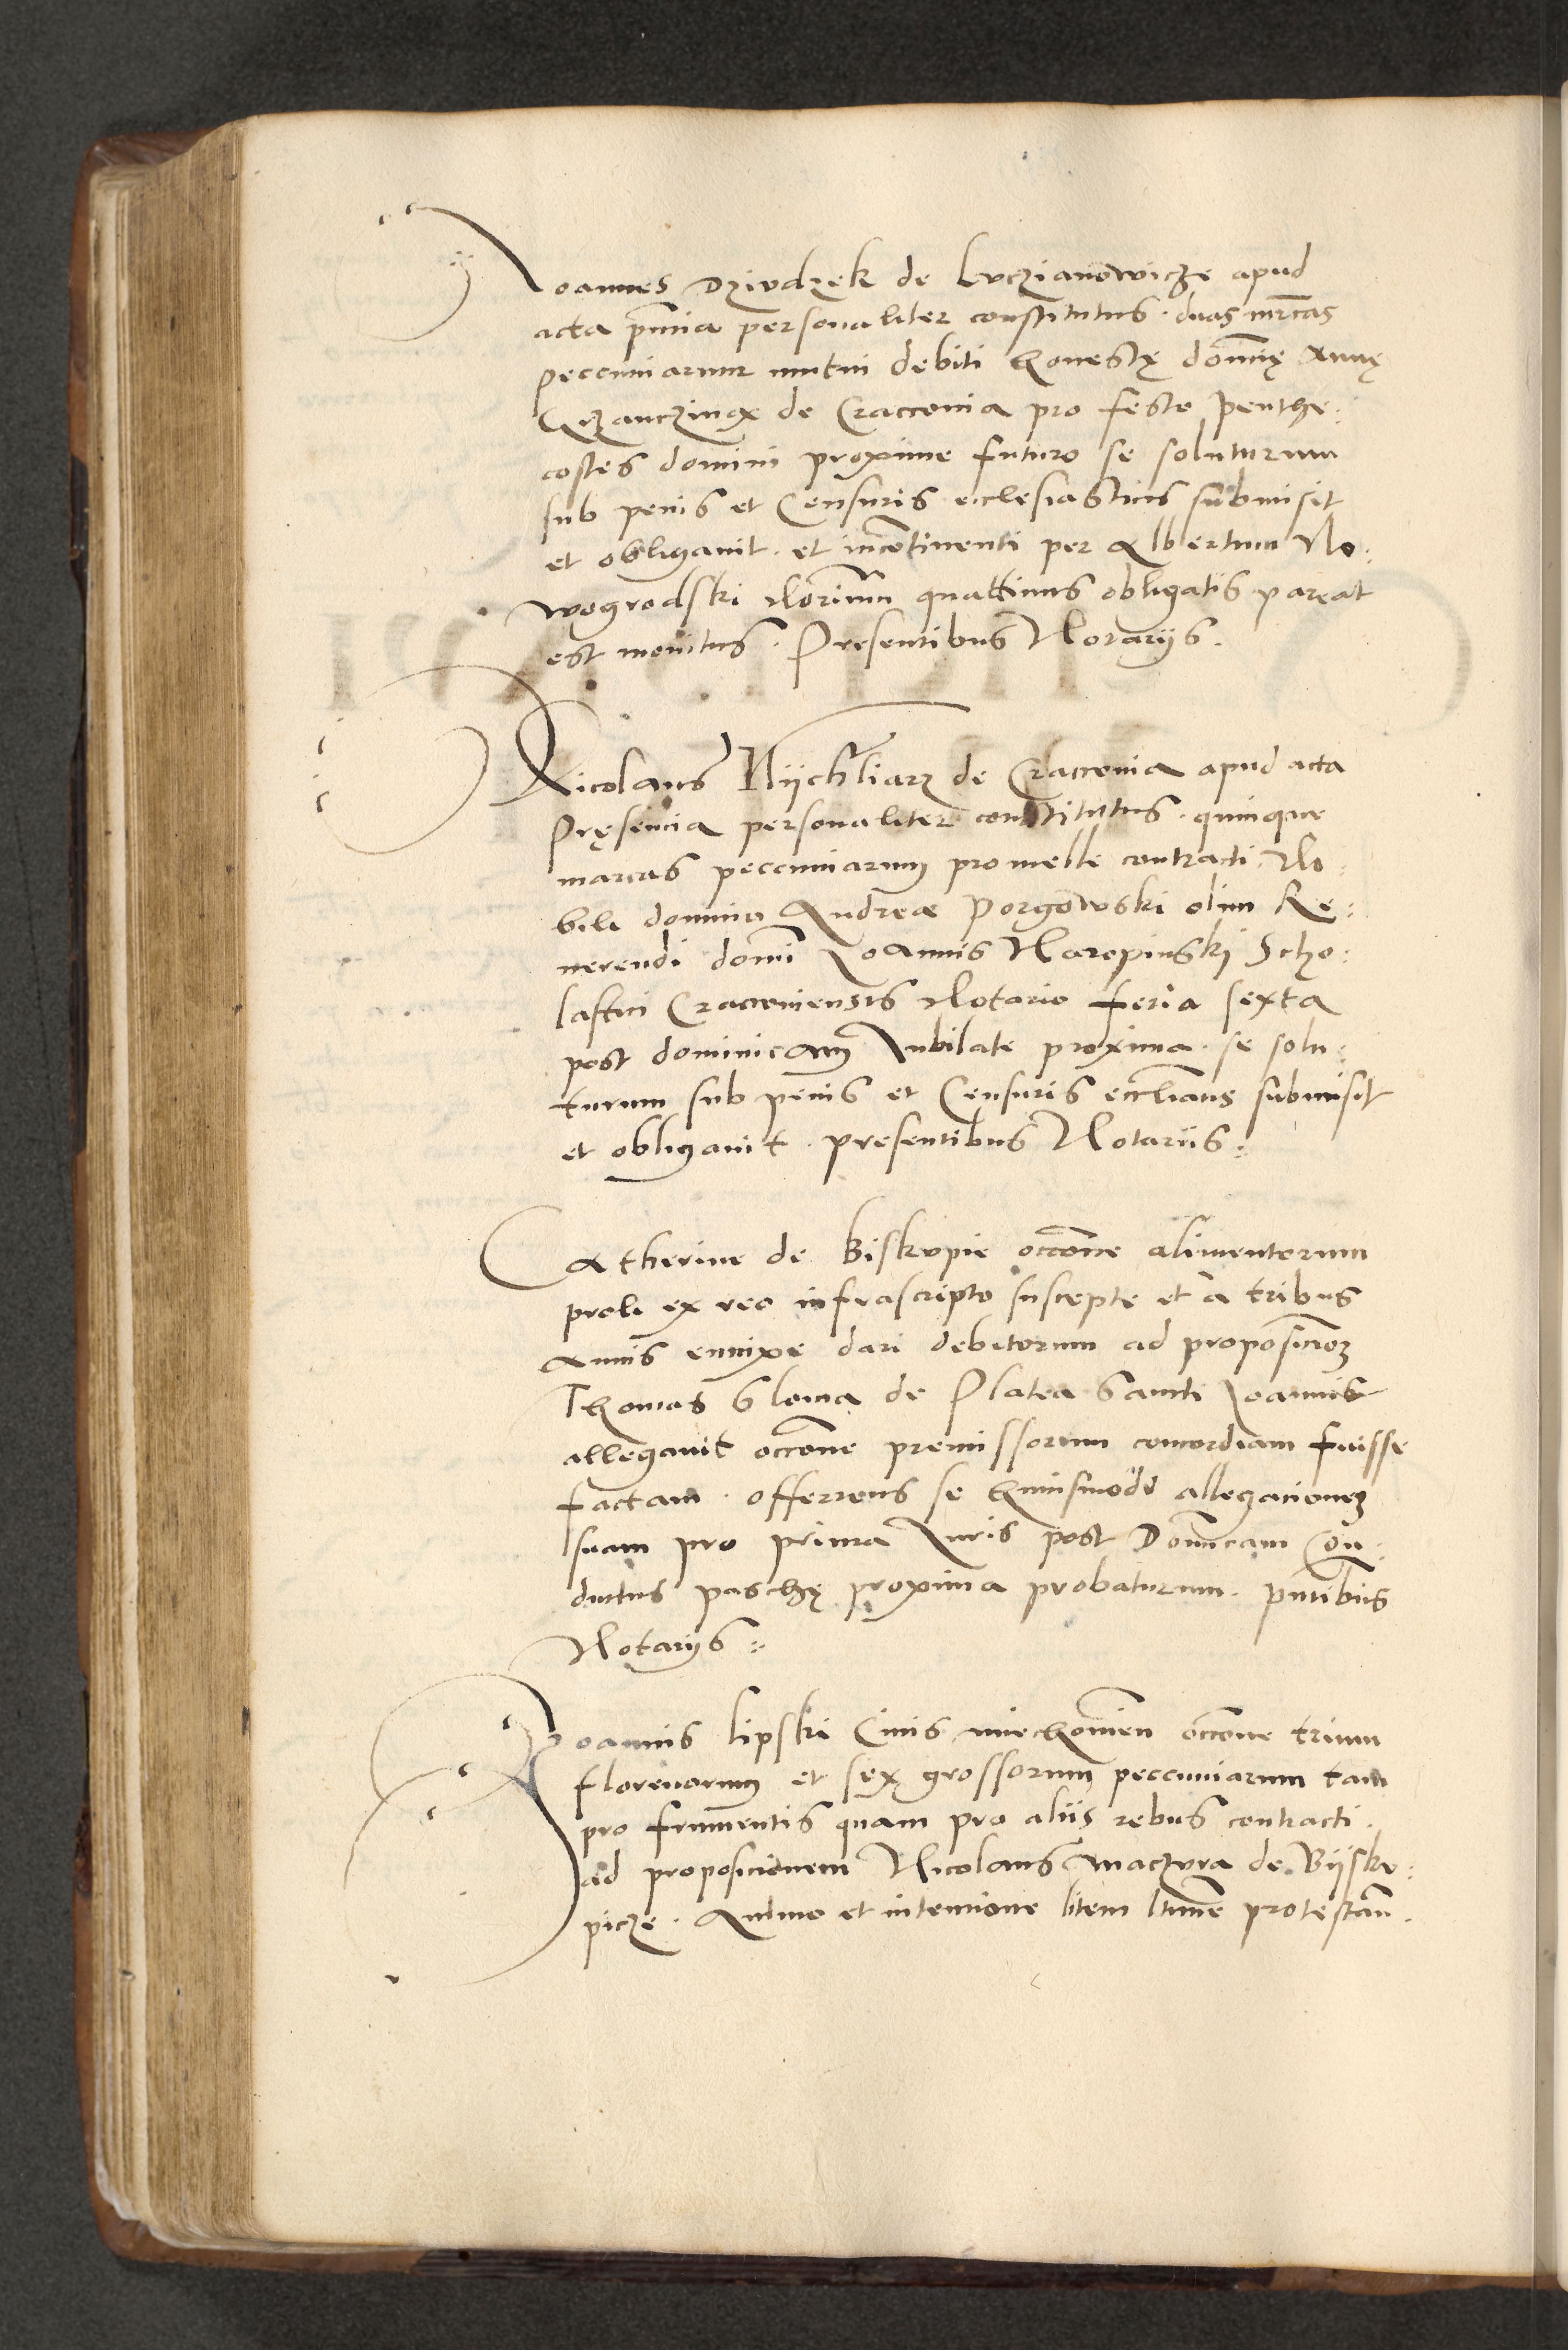 Ioannes Dziudzek de Luczianowicze apud
acta pñncia personaliter constitutus. duas mrcas
peccuniarum mutui debiti honestę domię Annę
de Cracconia pro festo Penthe:
costes domini proxime futuro se soluturum
sub penis et Censuris ecclesiasticis submisit
et obligauit. et incotinenti per Albertum No:
wogrodski Notarium quatinus obligatis pareat
est monitus. Presentibus Notarijs.
Nicolaus de Cracconia apud acta
Pręsencia personaliter constitutus. quinque
marcas peccuniarum pro melle contracti No:
bili domino Andreæ Porgowski olim Re:
uerendi domi Ioannis Karopinskj Scho:
lastici Cracconiensis Notario feria sexta
post dominicam Iubilate proxima. se solu:
turum sub penis et Censuris eccliaticis submisit
et obligauit. presentibus Notariis:
Catherine de Biskupie occone alimentorum
proli ex reo infrascripto suscepte et a tribus
annis ennixe dari debitorum ad proposicioem
Thomas Gloma de Platea Sancti Ioannis
allegauit occone premissorum concordiam fuisse
factam. offerens se huiusmodi allegacionem
suam pro prima Iuris post Domicam Con:
ductus paschę proxima probaturum. pntibus
Notarijs:
Ioannis Lipski Ciuis miechouien occone trium
florenorum et sex grossorum peccuniarum tam
pro frumentis quam pro aliis rebus contracti.
ad proposicionem Nicolaus Maczura de Bijsku:
picze. Animo et intencione litem protestan.